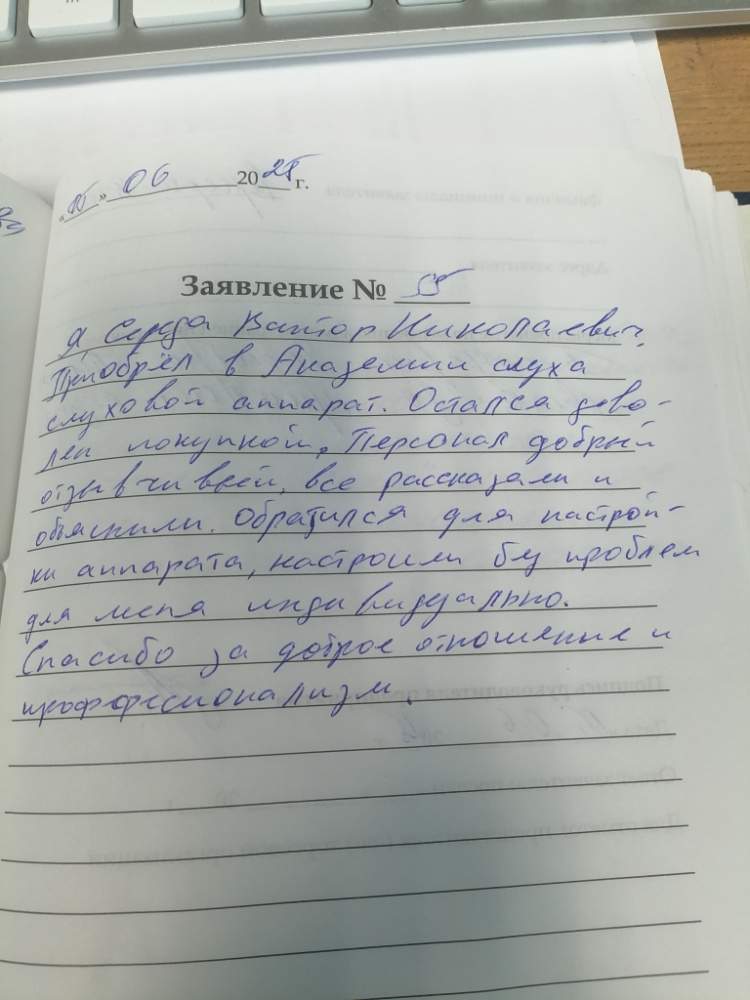 « » 06 2025 г.
Заявление № 55
Я Середа Виктор Николаевич,
Приобрёл в Академии слуха
слуховой аппарат. Остался дово-
лен покупкой, Персонал добрый
отзывчивый, все рассказали и
объяснили. Обратился для настрой-
ки аппарата, настроили без проблем
для меня индивидуально.
Спасибо за доброе отношение и
профессионализм.